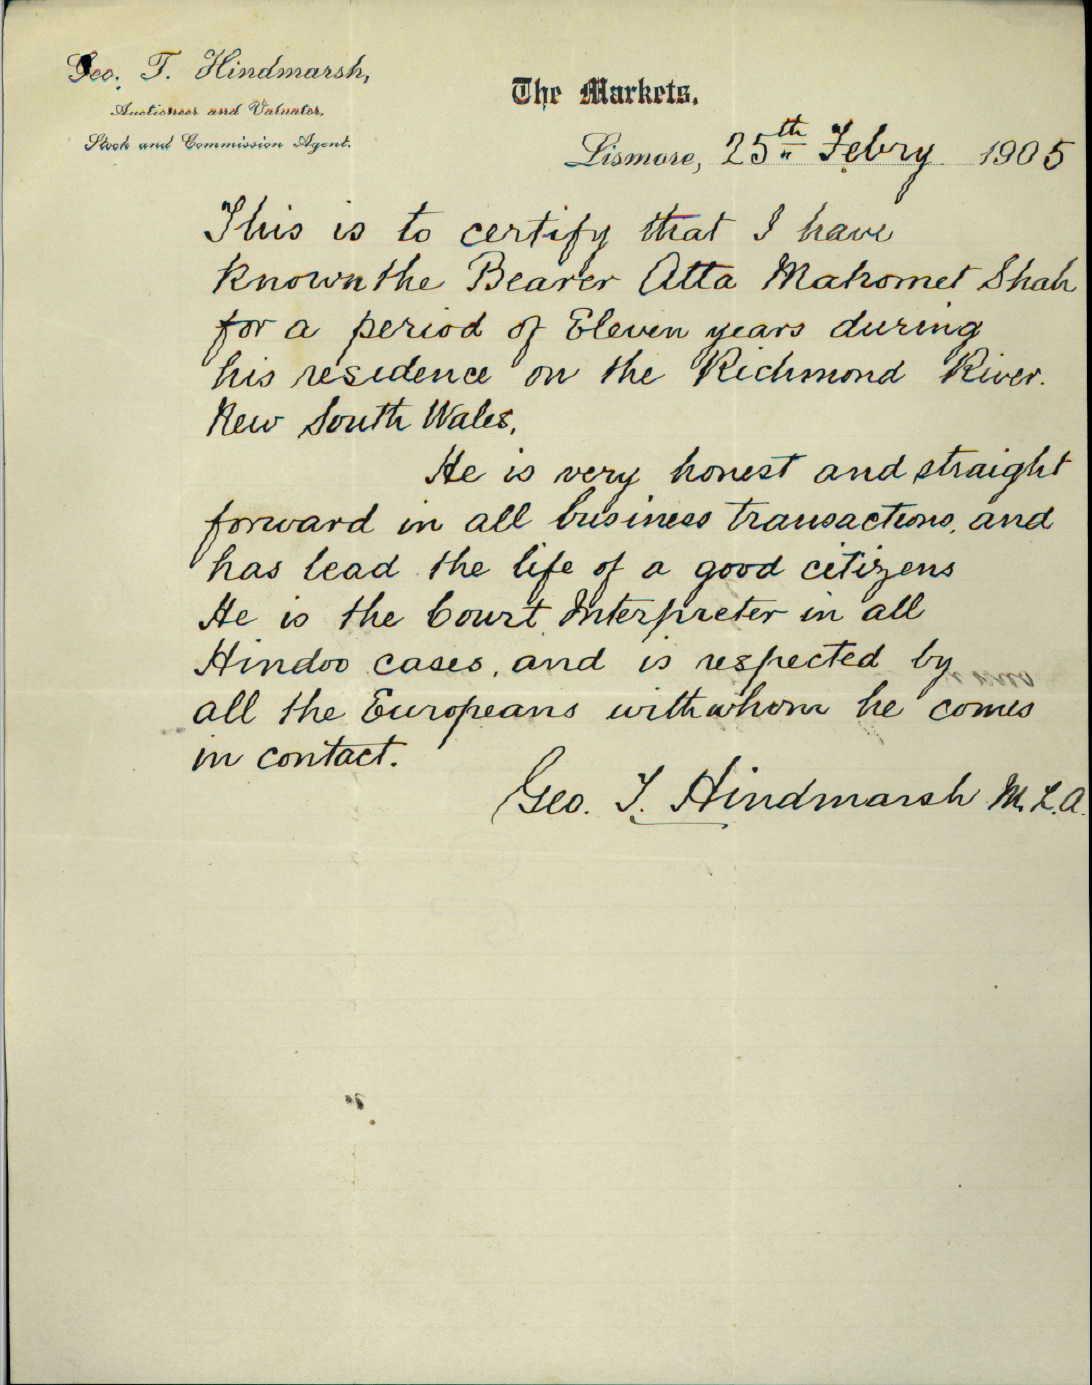 Geo. T. Hindmarsh,
Auctioneer and Valuator.
Stock and Commission Agent.
The Markets.
Lismore, 25th Febry 1905
This is to certify that I have
known the Bearer Atta Mahomet Shah
for a period of Eleven years during
his residence on the Richmond River.
New South Wales.
He is very honest and straight
forward in all business transactions, and
has lead the life of a good citizens
He is the Court Interpreter in all
Hindoo cases, and is respected by
all the Europeans with whom he comes
in contact.
Geo. T. Hindmarsh M.L.A.